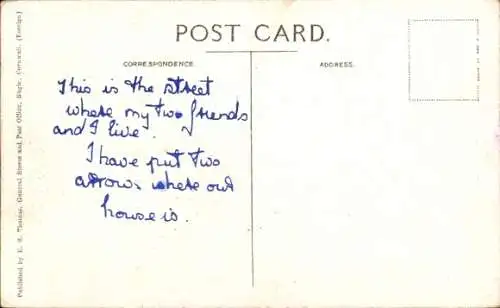 POST CARD.
CORRESPONDENCE
ADDRESS.
This is the street
where my two friends
and I live.
I have put two
arrows where our
house is.
Published by E. S. Thomas, General Stores and Post Office, Sligh, Cornwall. (Foreign)